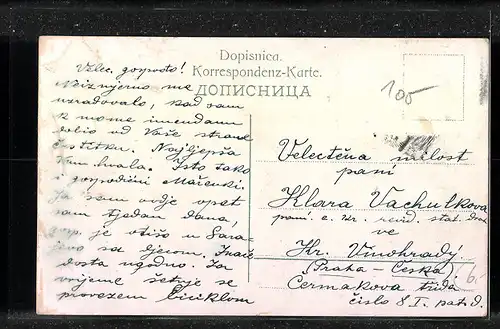 Dopisnica.
Korrespondenz-Karte.
ДОПИСНИЦА
105
Velec. gospođo!
Neizmjerno me
uzradovalo, kad sam
k mome imendanu
dobio od Vaše strane
čestitku. Najljepša
Vam hvala. Isto tako
i gospodični Mařenki.
Ja sam ovdje opet
sam tjedan dana,
gosp. je otišo u Sara-
jevo sa djecom. Inače
dosta ugodno. Za
vrijeme šetnje se
provezem biciklom
Velectěna milost
paní
Klara Vachulkova
paní c. kr. revid. stat. drah
ve
Kr. Vinohrady
(Praha - Česka)
Čermakova třída
číslo 8 I. pat. d.
6.